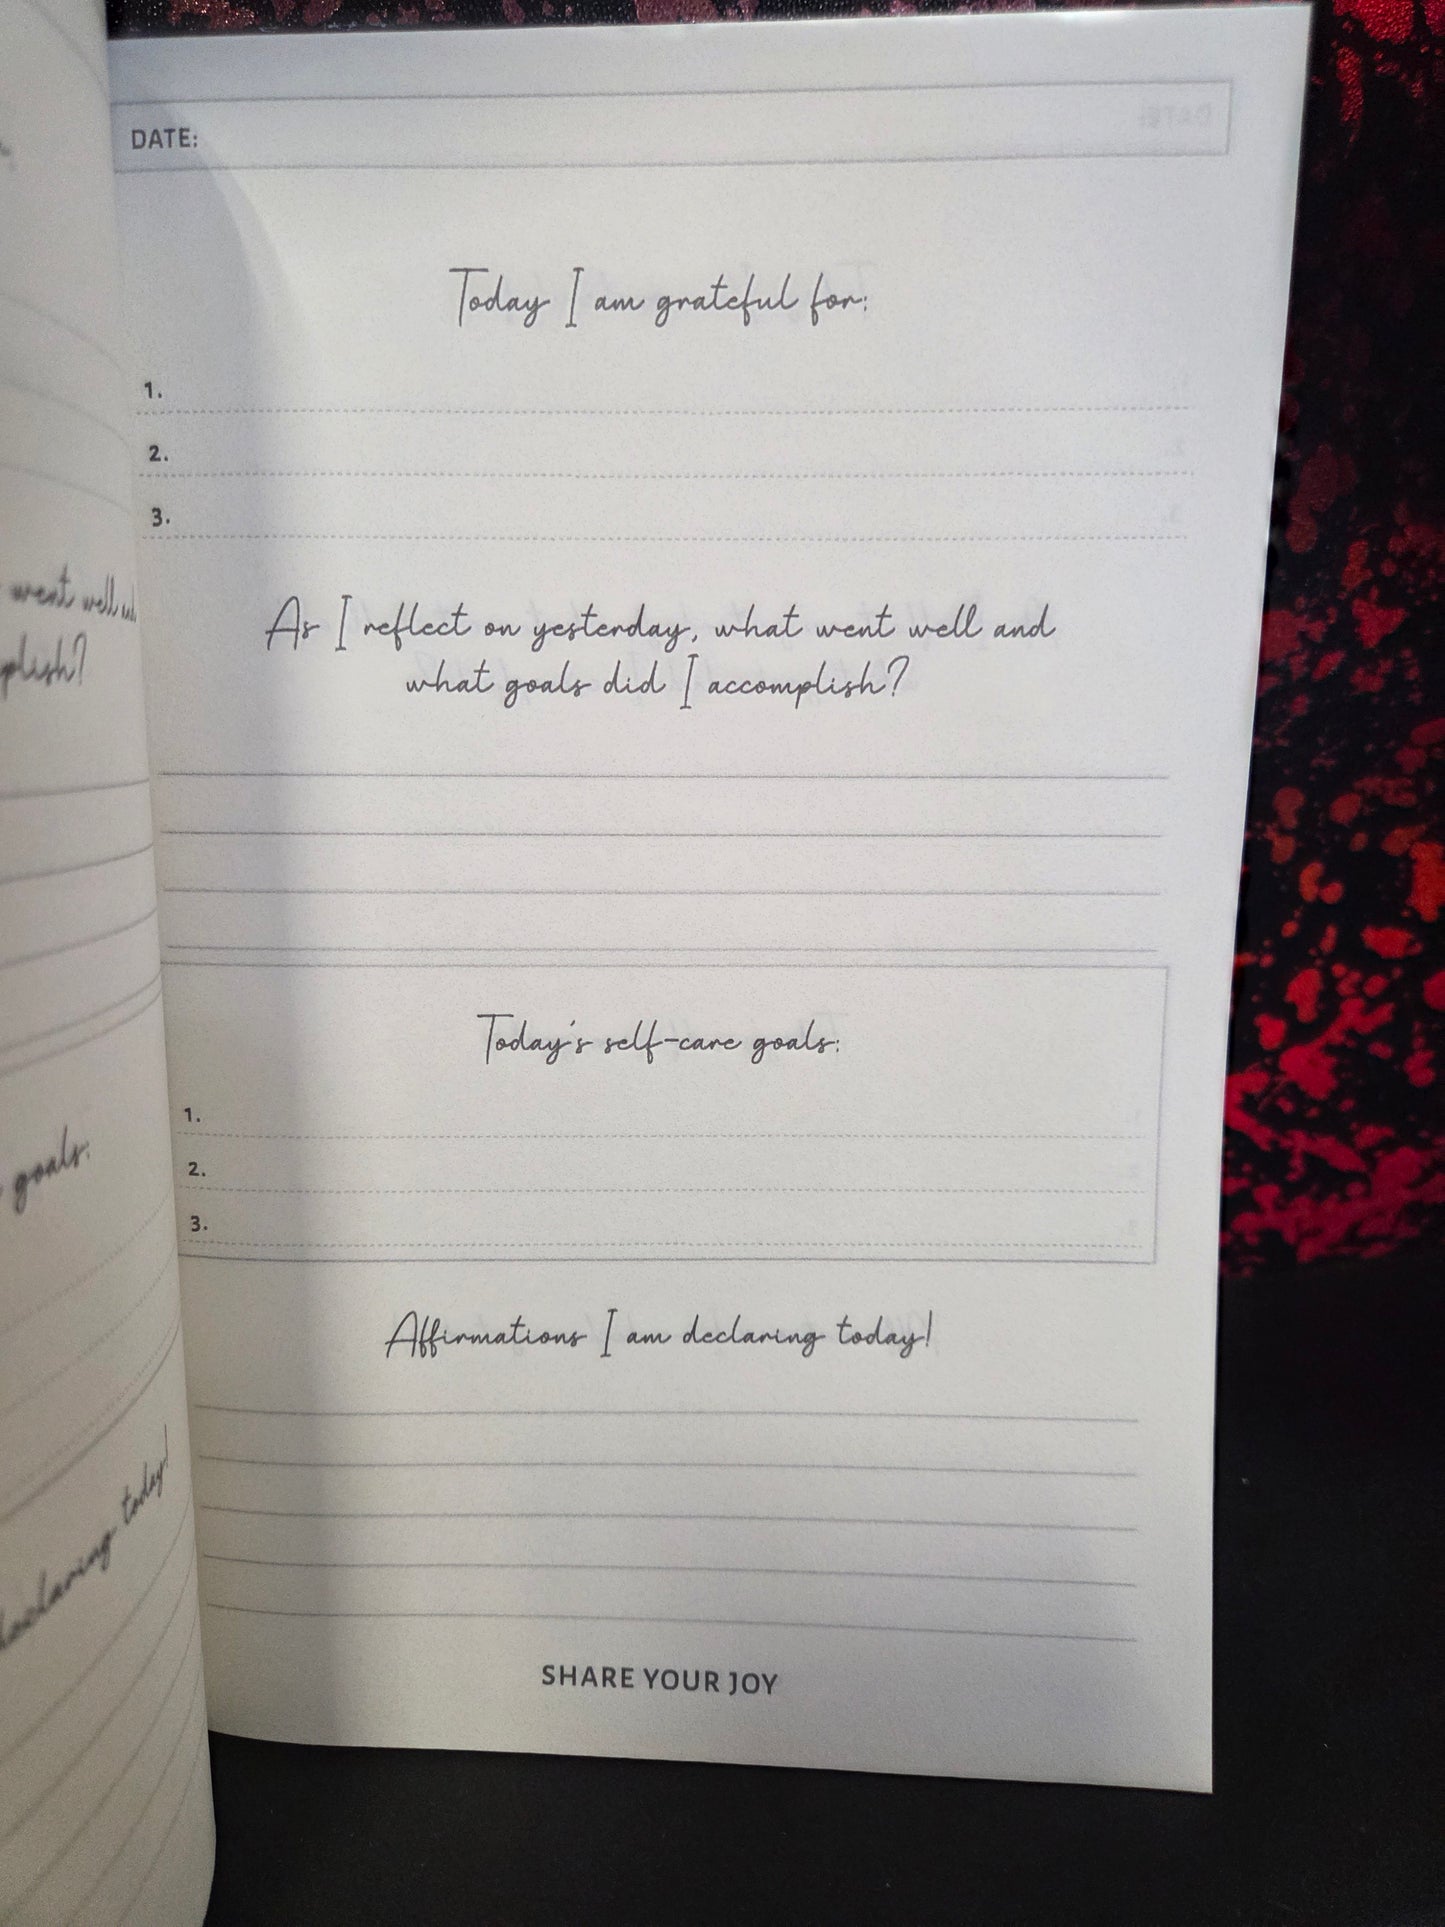 went well
plish?
goals:
declaring today!
DATE:
Today I am grateful for:
1.
2.
3.
As I reflect on yesterday, what went well and
what goals did I accomplish?
Today's self-care goals:
1.
2.
3.
Affirmations I am declaring today!
SHARE YOUR JOY